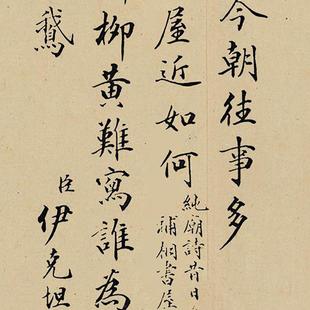 今朝往事多
屋近如何
純廟詩昔日
補桐書屋
柳黃難寫誰為
鵝
臣伊克坦